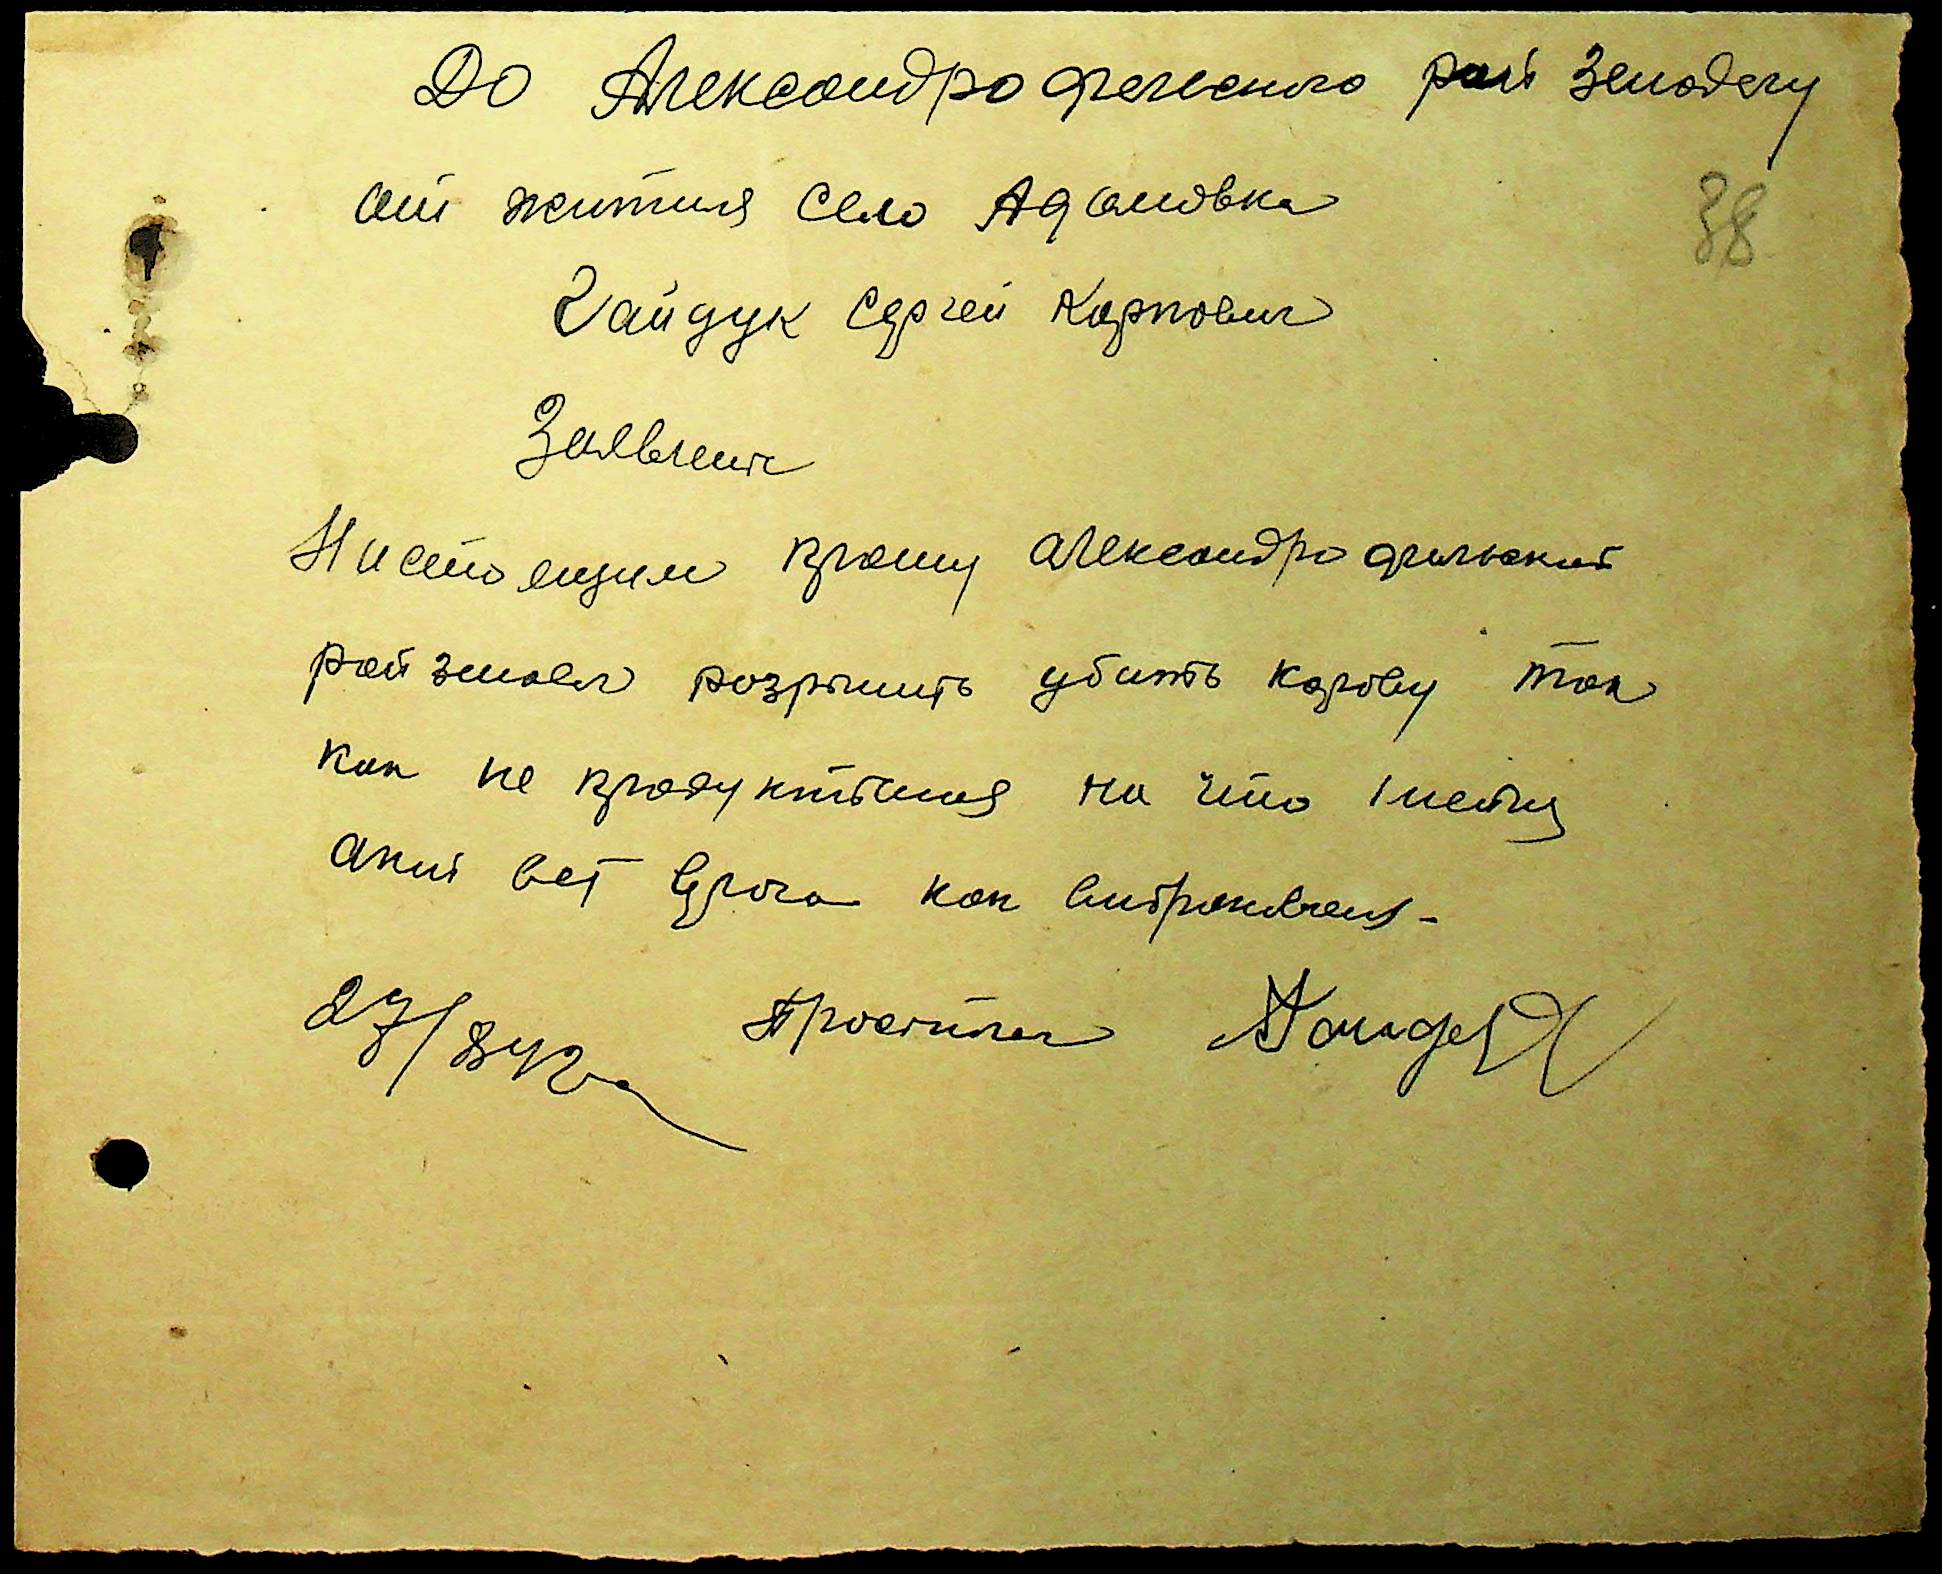 До Александрофельского райЗемоделу
38
от жителя село Адамовка
Гайдук Сергей Карпович
Заявление
Настоящим прошу александрофельский
рай земодел розришить убить корову так
как не продуктивная на что имеется
акт вет врача как выбракованая -
27/8 42 г Проситель